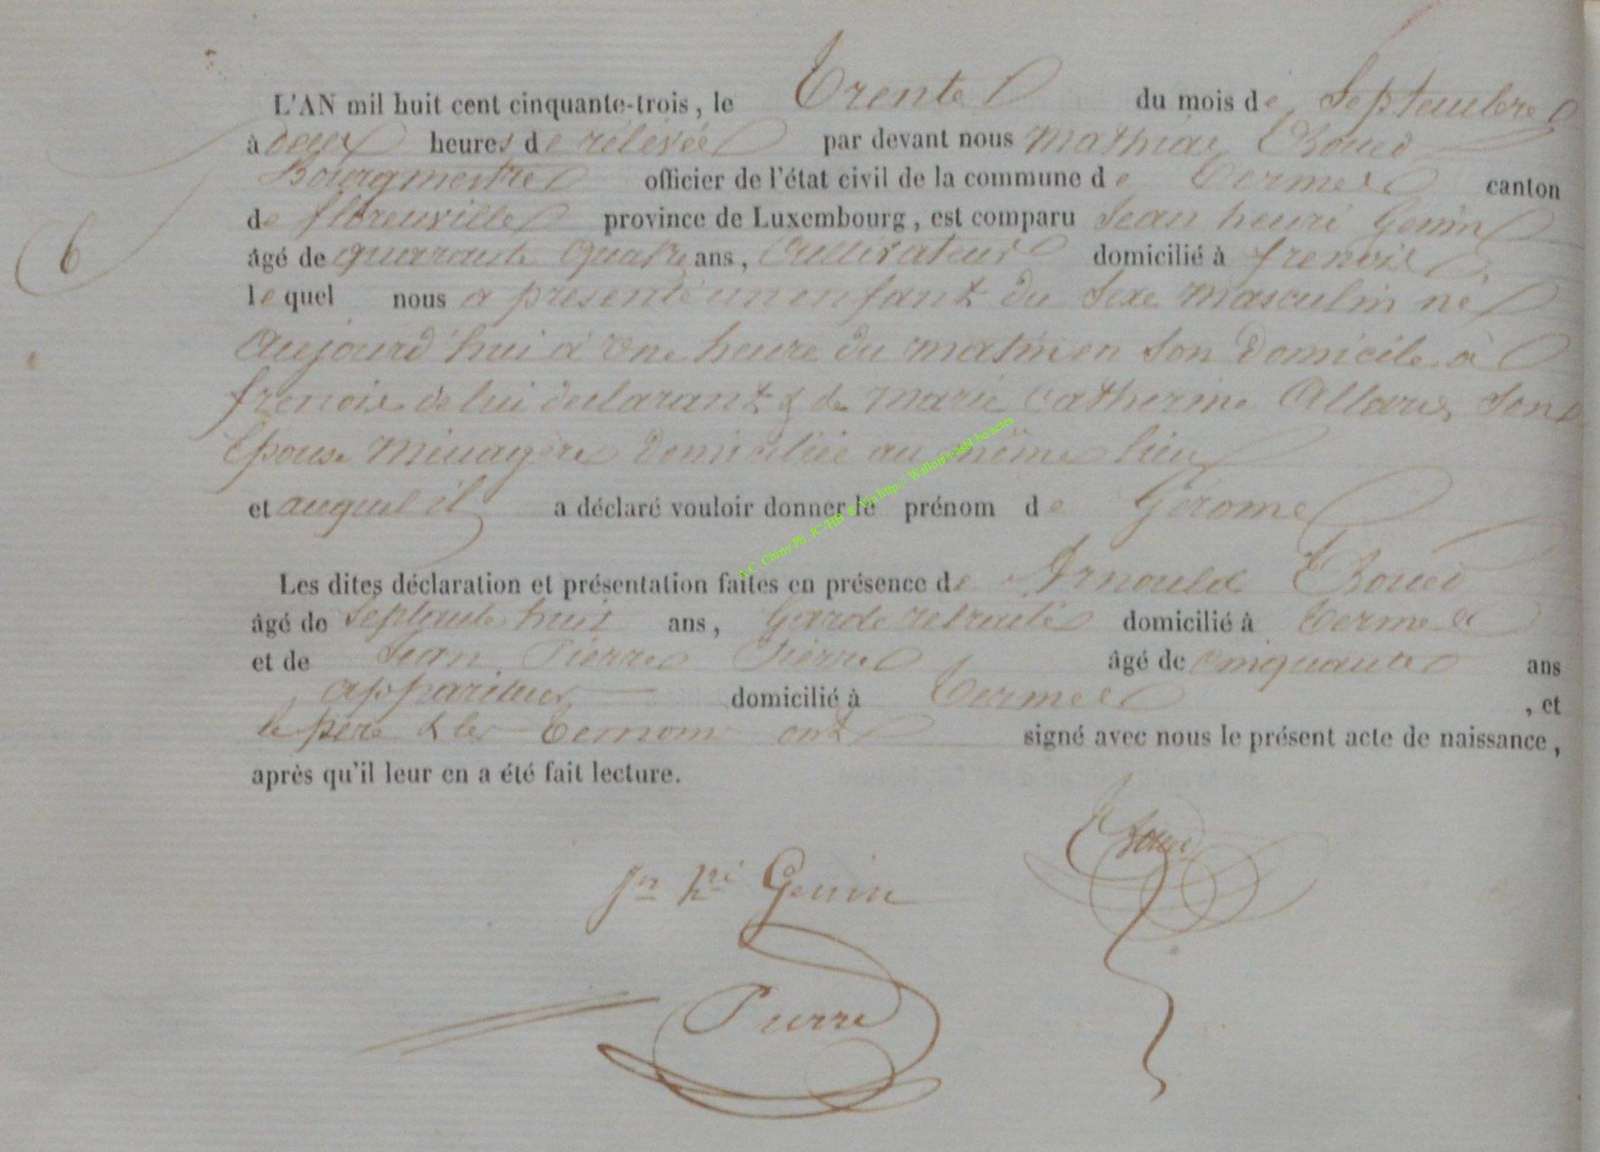 L'AN mil huit cent cinquante-trois, le Trente du mois de Septembre
à deux heures de rélévée par devant nous Mathias
Bourgmestre officier de l'état civil de la commune de Termes canton
de florenville province de Luxembourg, est comparu Jean henri Genin
âgé de quarante quatre ans, Cultivateur domicilié à frenois
6
lequel nous a présenté un enfant du Sexe masculin né
aujourd'hui à une heure du matin en Son Domicile à
frenois de lui déclarant & de marie Catherine Allard Son
Epouse Ménagère Domiciliée au même lieu
et auquel il a déclaré vouloir donner le prénom de Gérome
Les dites déclaration et présentation faites en présence de Arnould
âgé de Septante huit ans, Garde retraité domicilié à Termes
et de Jean Pierre Pierre âgé de cinquante ans
appariteur domicilié à Termes, et
le père & les Témoins ont signé avec nous le présent acte de naissance,
après qu'il leur en a été fait lecture.
Jn hri Genin
Pierre